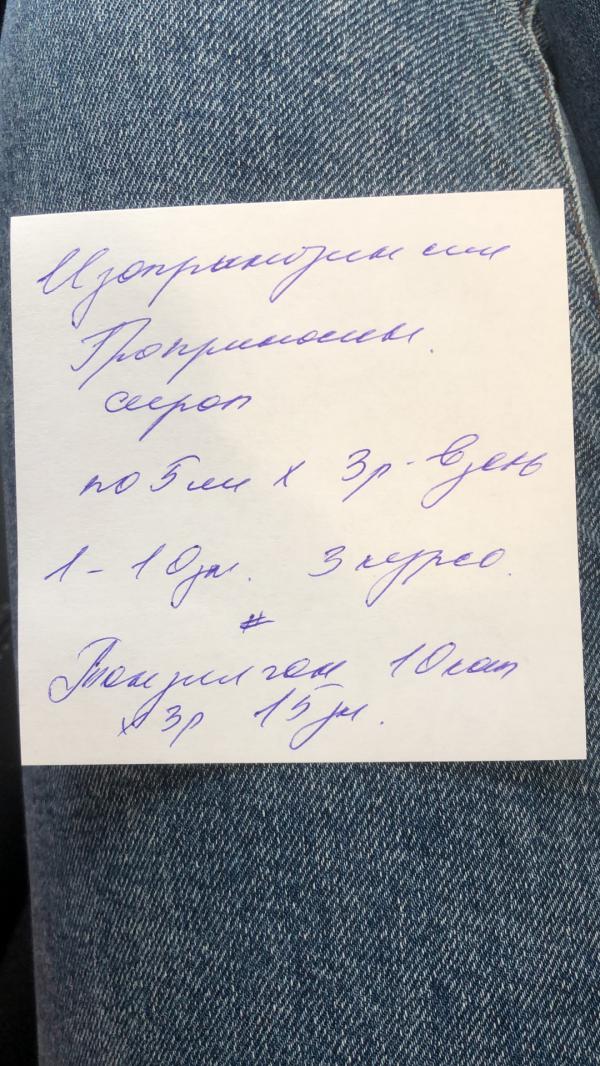 Изопринозин или
Гроприносин.
сироп
по 5 мл х 3 р. в день
1 - 10 дн. 3 курса.
#
Тонзилгон 10 кап
х 3 р 15 дн.